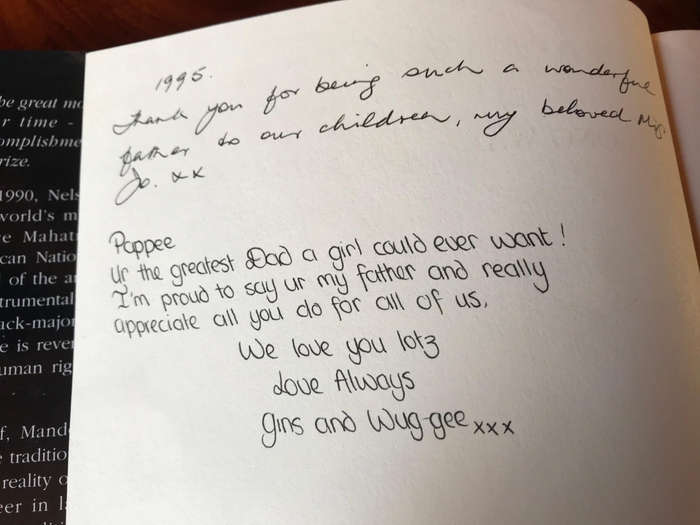 be great
r time -
omplishme
rize.
1990, Nels
world's m
e Mahat
can Natio
of the a
trumental
ack-major
e is rever
uman rig
f, Mand
traditio
reality o
eer in l
1995.
Thank you for being such a wonderful
father to our children, my beloved
Jo. xx
Poppee
Ur the greatest Dad a girl could ever want!
I'm proud to say ur my father and really
appreciate all you do for all of us.
We love you lotz
Love Always
Gins and Wug-gee xxx